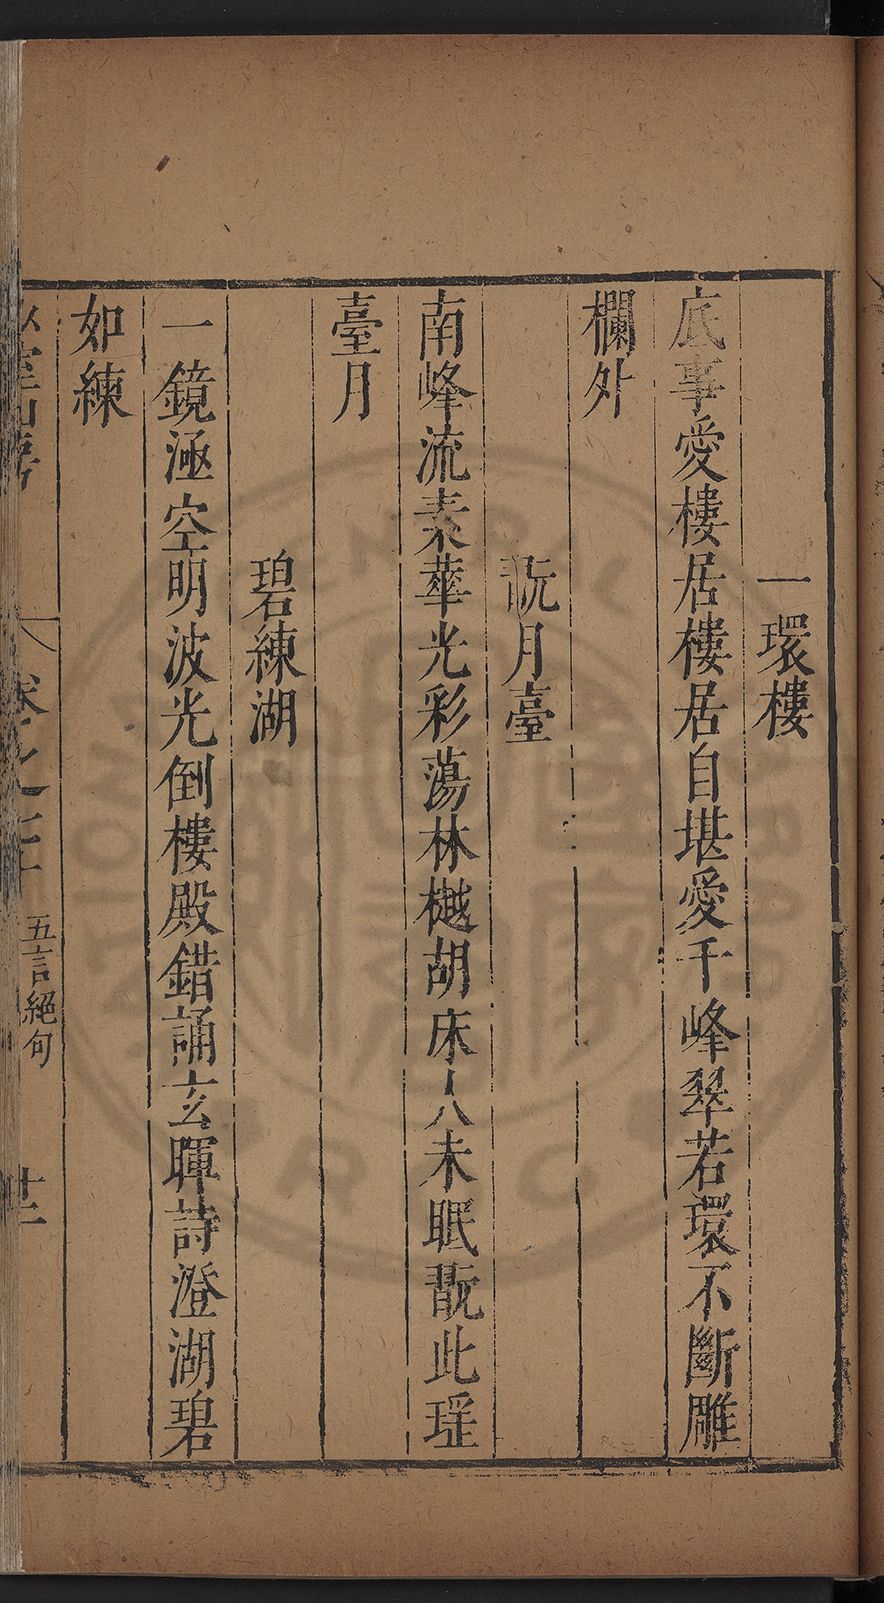 一環樓
底事愛樓居樓居自堪愛千峰翠若環不斷雕
欄外
翫月臺
南峰流素華光彩蕩林樾胡床人未眠翫此瑤
臺月
碧練湖
一鏡涵空明波光倒樓殿錯誦玄暉詩澄湖碧
如練
五言絕句